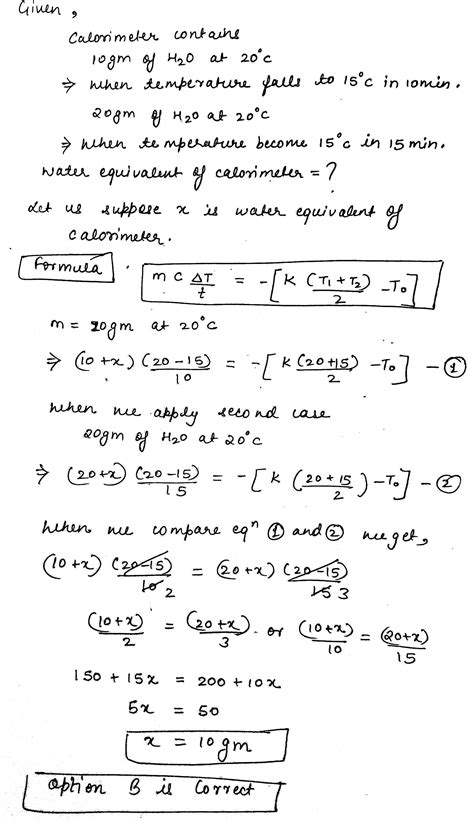 Given,
Calorimeter contains
10gm of H₂O at 20°c
⇒ when temperature falls to 15°c in 10min.
20gm of H₂O at 20°c
⇒ when temperature become 15°c in 15 min.
water equivalent of calorimeter = ?
Let us suppose x is water equivalent of
calorimeter.
Formula . m c ΔT/t = -[K (T₁+T₂)/2 - T₀]
m = 10gm at 20°c
⇒ (10+x) (20-15)/10 = -[K (20+15)/2 - T₀] - ①
when we apply second case
20gm of H₂O at 20°c
⇒ (20+x) (20-15)/15 = -[K (20+15/2) - T₀] - ②
when we compare eqⁿ ① and ② we get,
(10+x) (20-15)/10 2 = (20+x) (20-15)/15 3
(10+x)/2 = (20+x)/3 . or (10+x)/10 = (20+x)/15
150 + 15x = 200 + 10x
5x = 50
x = 10gm
option B is correct